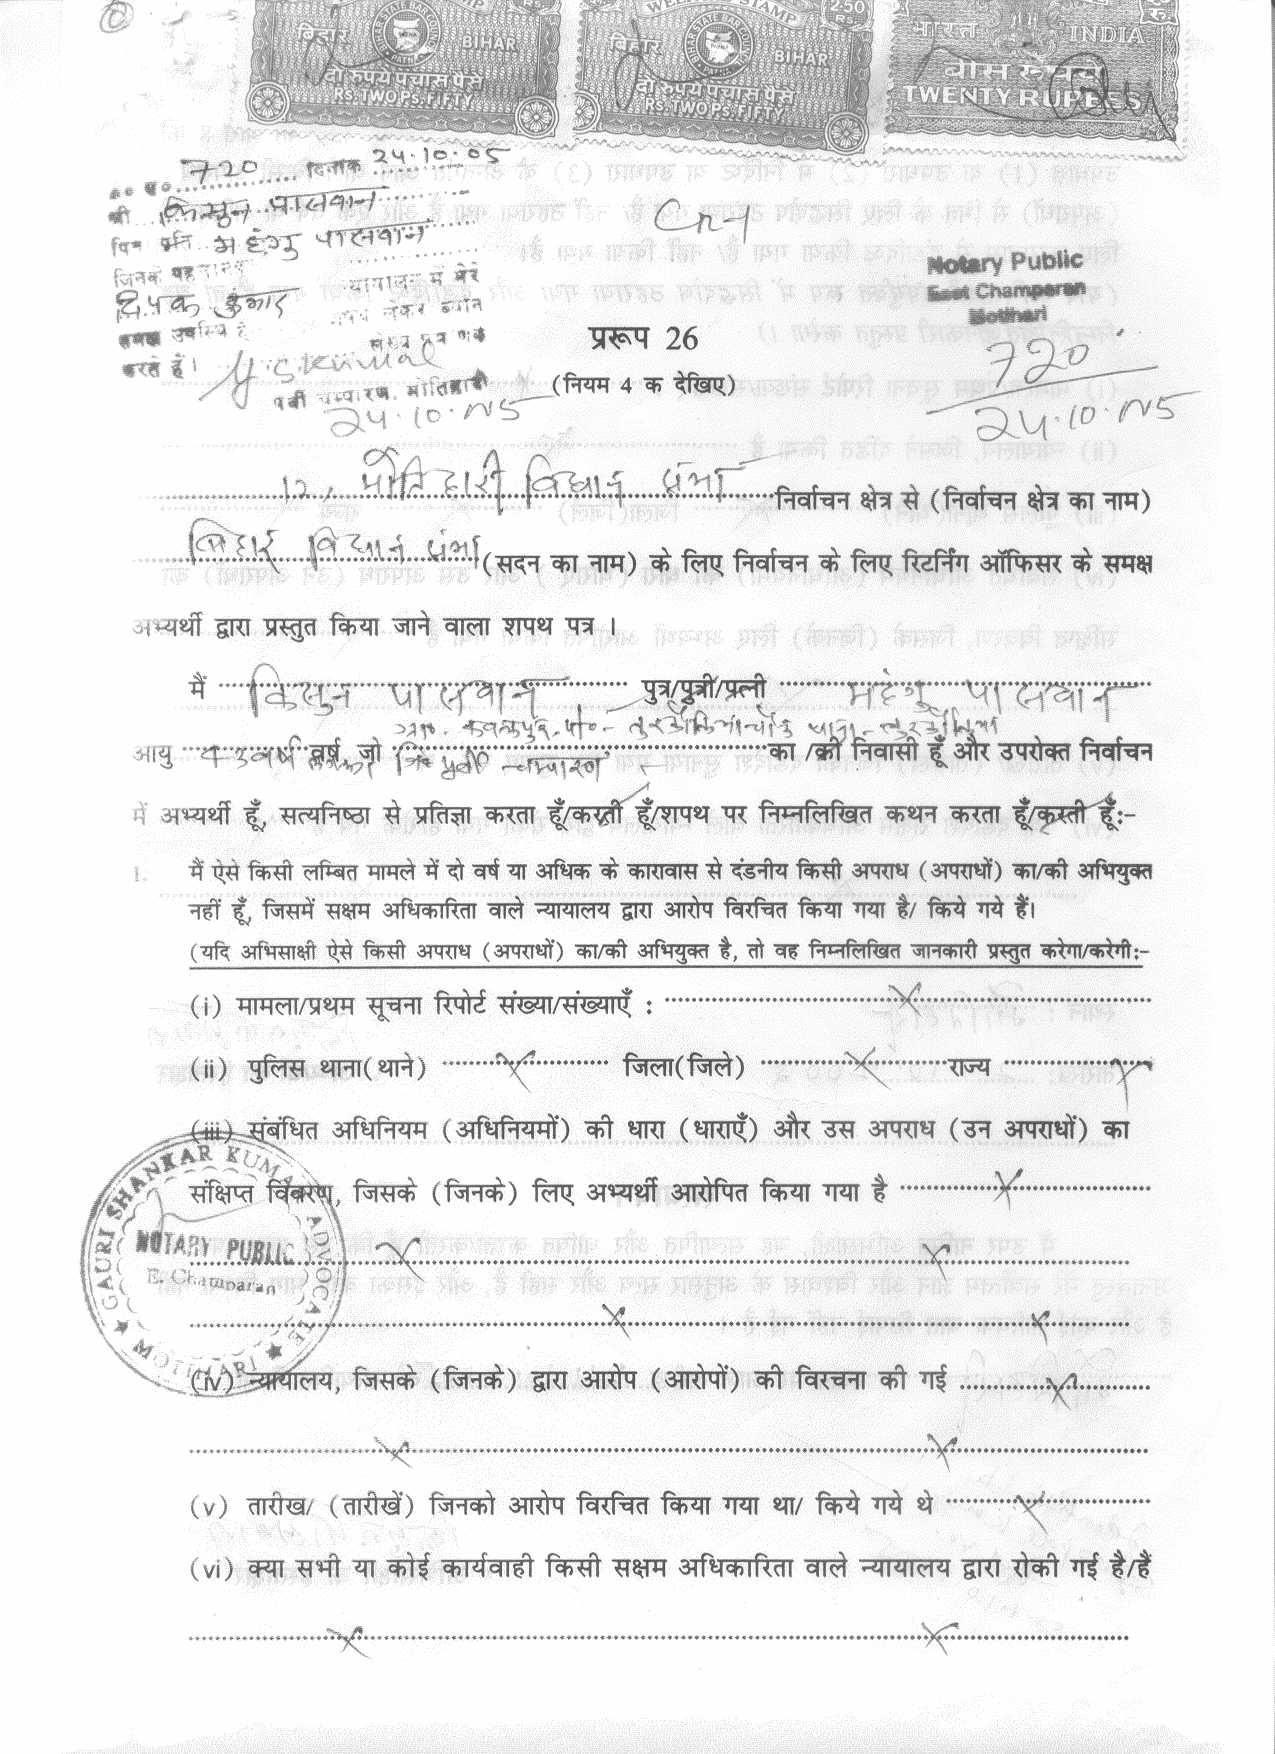 WELFARE STAMP
2-50
बिहार BIHAR
बिहार BIHAR
भारत INDIA
दो रुपये पचास पैसे
RS. TWO PS. FIFTY
दो रुपये पचास पैसे
RS. TWO PS. FIFTY
बीस रुपये
TWENTY RUPEES
720 दिनांक 24.10.05
श्री किसुन पासवान
महंगु पासवान
दिपक कुमार
करते हैं।
24.10.05
Notary Public
East Champaran
Motihari
720
24.10.05
प्ररूप 26
(नियम 4 क देखिए)
12, मोतिहारी विधान सभा निर्वाचन क्षेत्र से (निर्वाचन क्षेत्र का नाम)
बिहार विधान सभा (सदन का नाम) के लिए निर्वाचन के लिए रिटर्निंग ऑफिसर के समक्ष
अभ्यर्थी द्वारा प्रस्तुत किया जाने वाला शपथ पत्र ।
मैं किसुन पासवान पुत्र/पुत्री/पत्नी महंगु पासवान
आयु 43 वर्ष वर्ष, जो जि० पूर्वी चम्पारण का /की निवासी हूँ और उपरोक्त निर्वाचन
में अभ्यर्थी हूँ, सत्यनिष्ठा से प्रतिज्ञा करता हूँ/करती हूँ/शपथ पर निम्नलिखित कथन करता हूँ/करती हूँ:-
1. मैं ऐसे किसी लम्बित मामले में दो वर्ष या अधिक के कारावास से दंडनीय किसी अपराध (अपराधों) का/की अभियुक्त
नहीं हूँ, जिसमें सक्षम अधिकारिता वाले न्यायालय द्वारा आरोप विरचित किया गया है/ किये गये हैं।
(यदि अभिसाक्षी ऐसे किसी अपराध (अपराधों) का/की अभियुक्त है, तो वह निम्नलिखित जानकारी प्रस्तुत करेगा/करेगी:-
(i) मामला/प्रथम सूचना रिपोर्ट संख्या/संख्याएँ : X
(ii) पुलिस थाना(थाने) X जिला(जिले) X राज्य X
(iii) संबंधित अधिनियम (अधिनियमों) की धारा (धाराएँ) और उस अपराध (उन अपराधों) का
संक्षिप्त विवरण, जिसके (जिनके) लिए अभ्यर्थी आरोपित किया गया है X
X X
X X
GAURI SHANKAR KUMAR ADVOCATE ★ MOTIHARI ★
NOTARY PUBLIC
E. Champaran
(iv) न्यायालय, जिसके (जिनके) द्वारा आरोप (आरोपों) की विरचना की गई X
X X
(v) तारीख/ (तारीखें) जिनको आरोप विरचित किया गया था/ किये गये थे X
(vi) क्या सभी या कोई कार्यवाही किसी सक्षम अधिकारिता वाले न्यायालय द्वारा रोकी गई है/हैं
X X